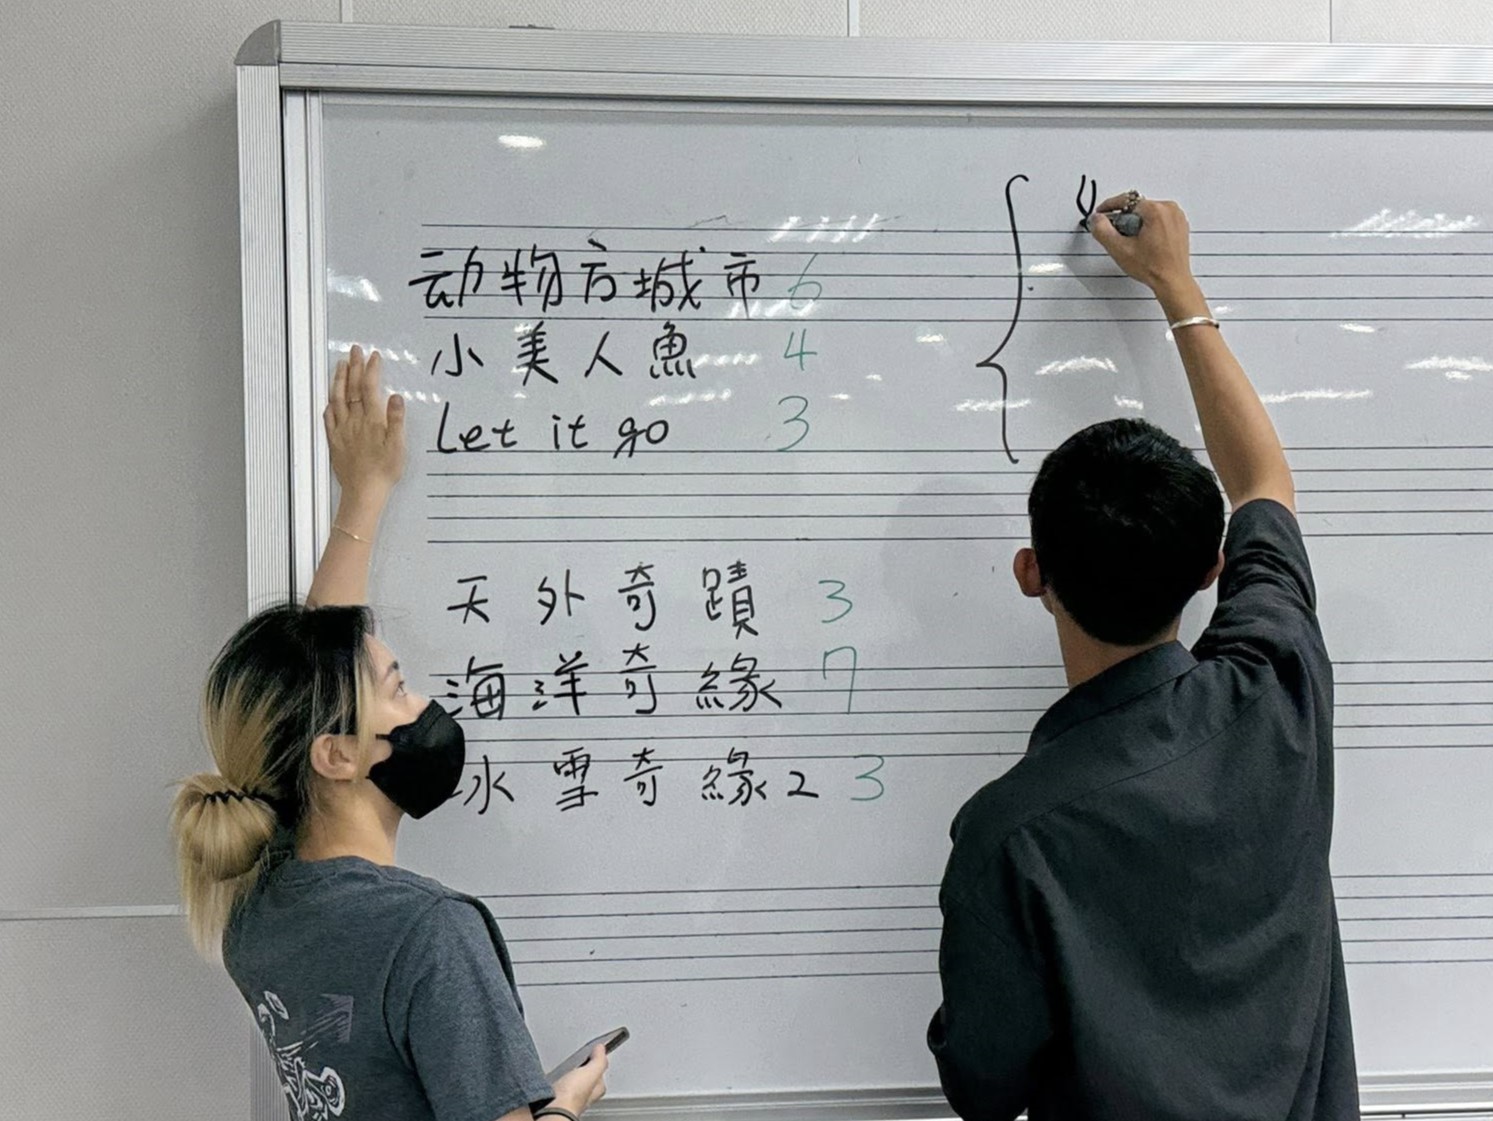 动物方城市 6
小美人魚 4
Let it go 3
天外奇蹟 3
海洋奇緣 7
冰雪奇緣2 3